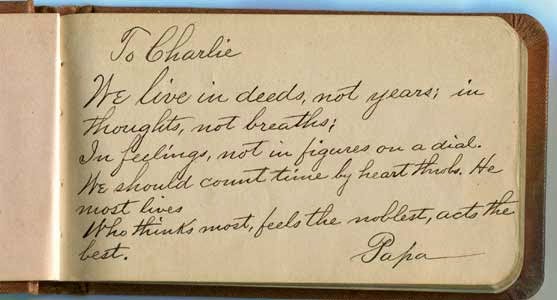 To Charlie
We live in deeds, not years; in
thoughts, not breaths;
In feelings, not in figures on a dial.
We should count time by heart throbs. He
most lives
Who thinks most, feels the noblest, acts the
best.
Papa